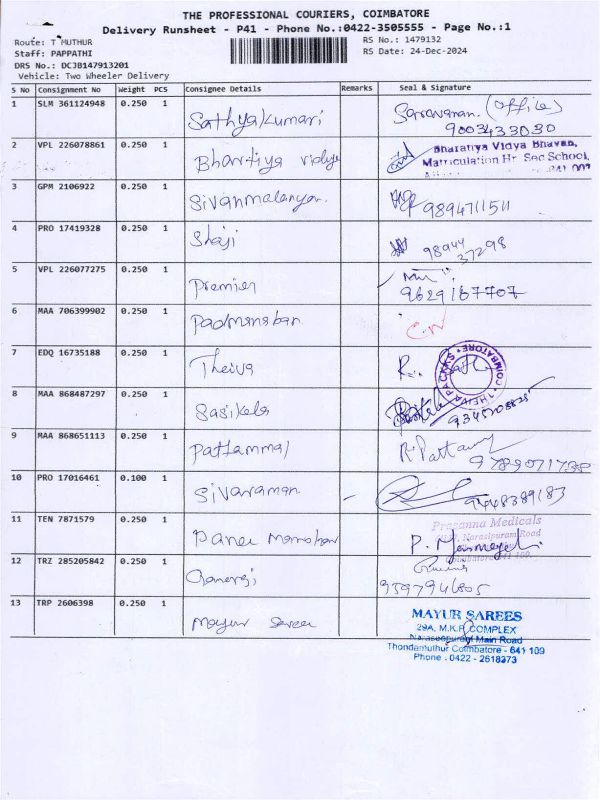 THE PROFESSIONAL COURIERS, COIMBATORE
Delivery Runsheet - P41 - Phone No.:0422-3505555 - Page No.:1
Route: T MUTHUR
RS No.: 1479132
Staff: PAPPATHI
RS Date: 24-Dec-2024
DRS No.: DCJB147913201
Vehicle: Two Wheeler Delivery
S No Consignment No Weight PCS Consignee Details Remarks Seal & Signature
1 SLM 361124948 0.250 1 Sathyakumari Saravanan. (office)
9003433030
2 VPL 226078861 0.250 1 Bhartiya vidya Bharatiya Vidya Bhavan,
Matriculation Hr Sec School,
3 GPM 2106922 0.250 1 Sivanmalanyan. 9894711511
4 PRO 17419328 0.250 1 Shaji 98944
37298
5 VPL 226077275 0.250 1 Premier
9629167707
6 MAA 706399902 0.250 1 Padmanaban
7 EDQ 16735188 0.250 1 Theiva
COIMBATORE
8 MAA 868487297 0.250 1 Sasikala
9 MAA 868651113 0.250 1 Pattammal R. Pattamal
10 PRO 17016461 0.100 1 Sivaraman - 9448389183
11 TEN 7871579 0.250 1 Prasanna Medicals
Narasipuram Road
12 TRZ 285205842 0.250 1
9397946805
13 TRP 2606398 0.250 1 Mayur Saree MAYUR SAREES
29A, M.K.P. COMPLEX
Naraseepuram Main Road
Thondamuthur Coimbatore - 641 109
Phone : 0422 - 2618373